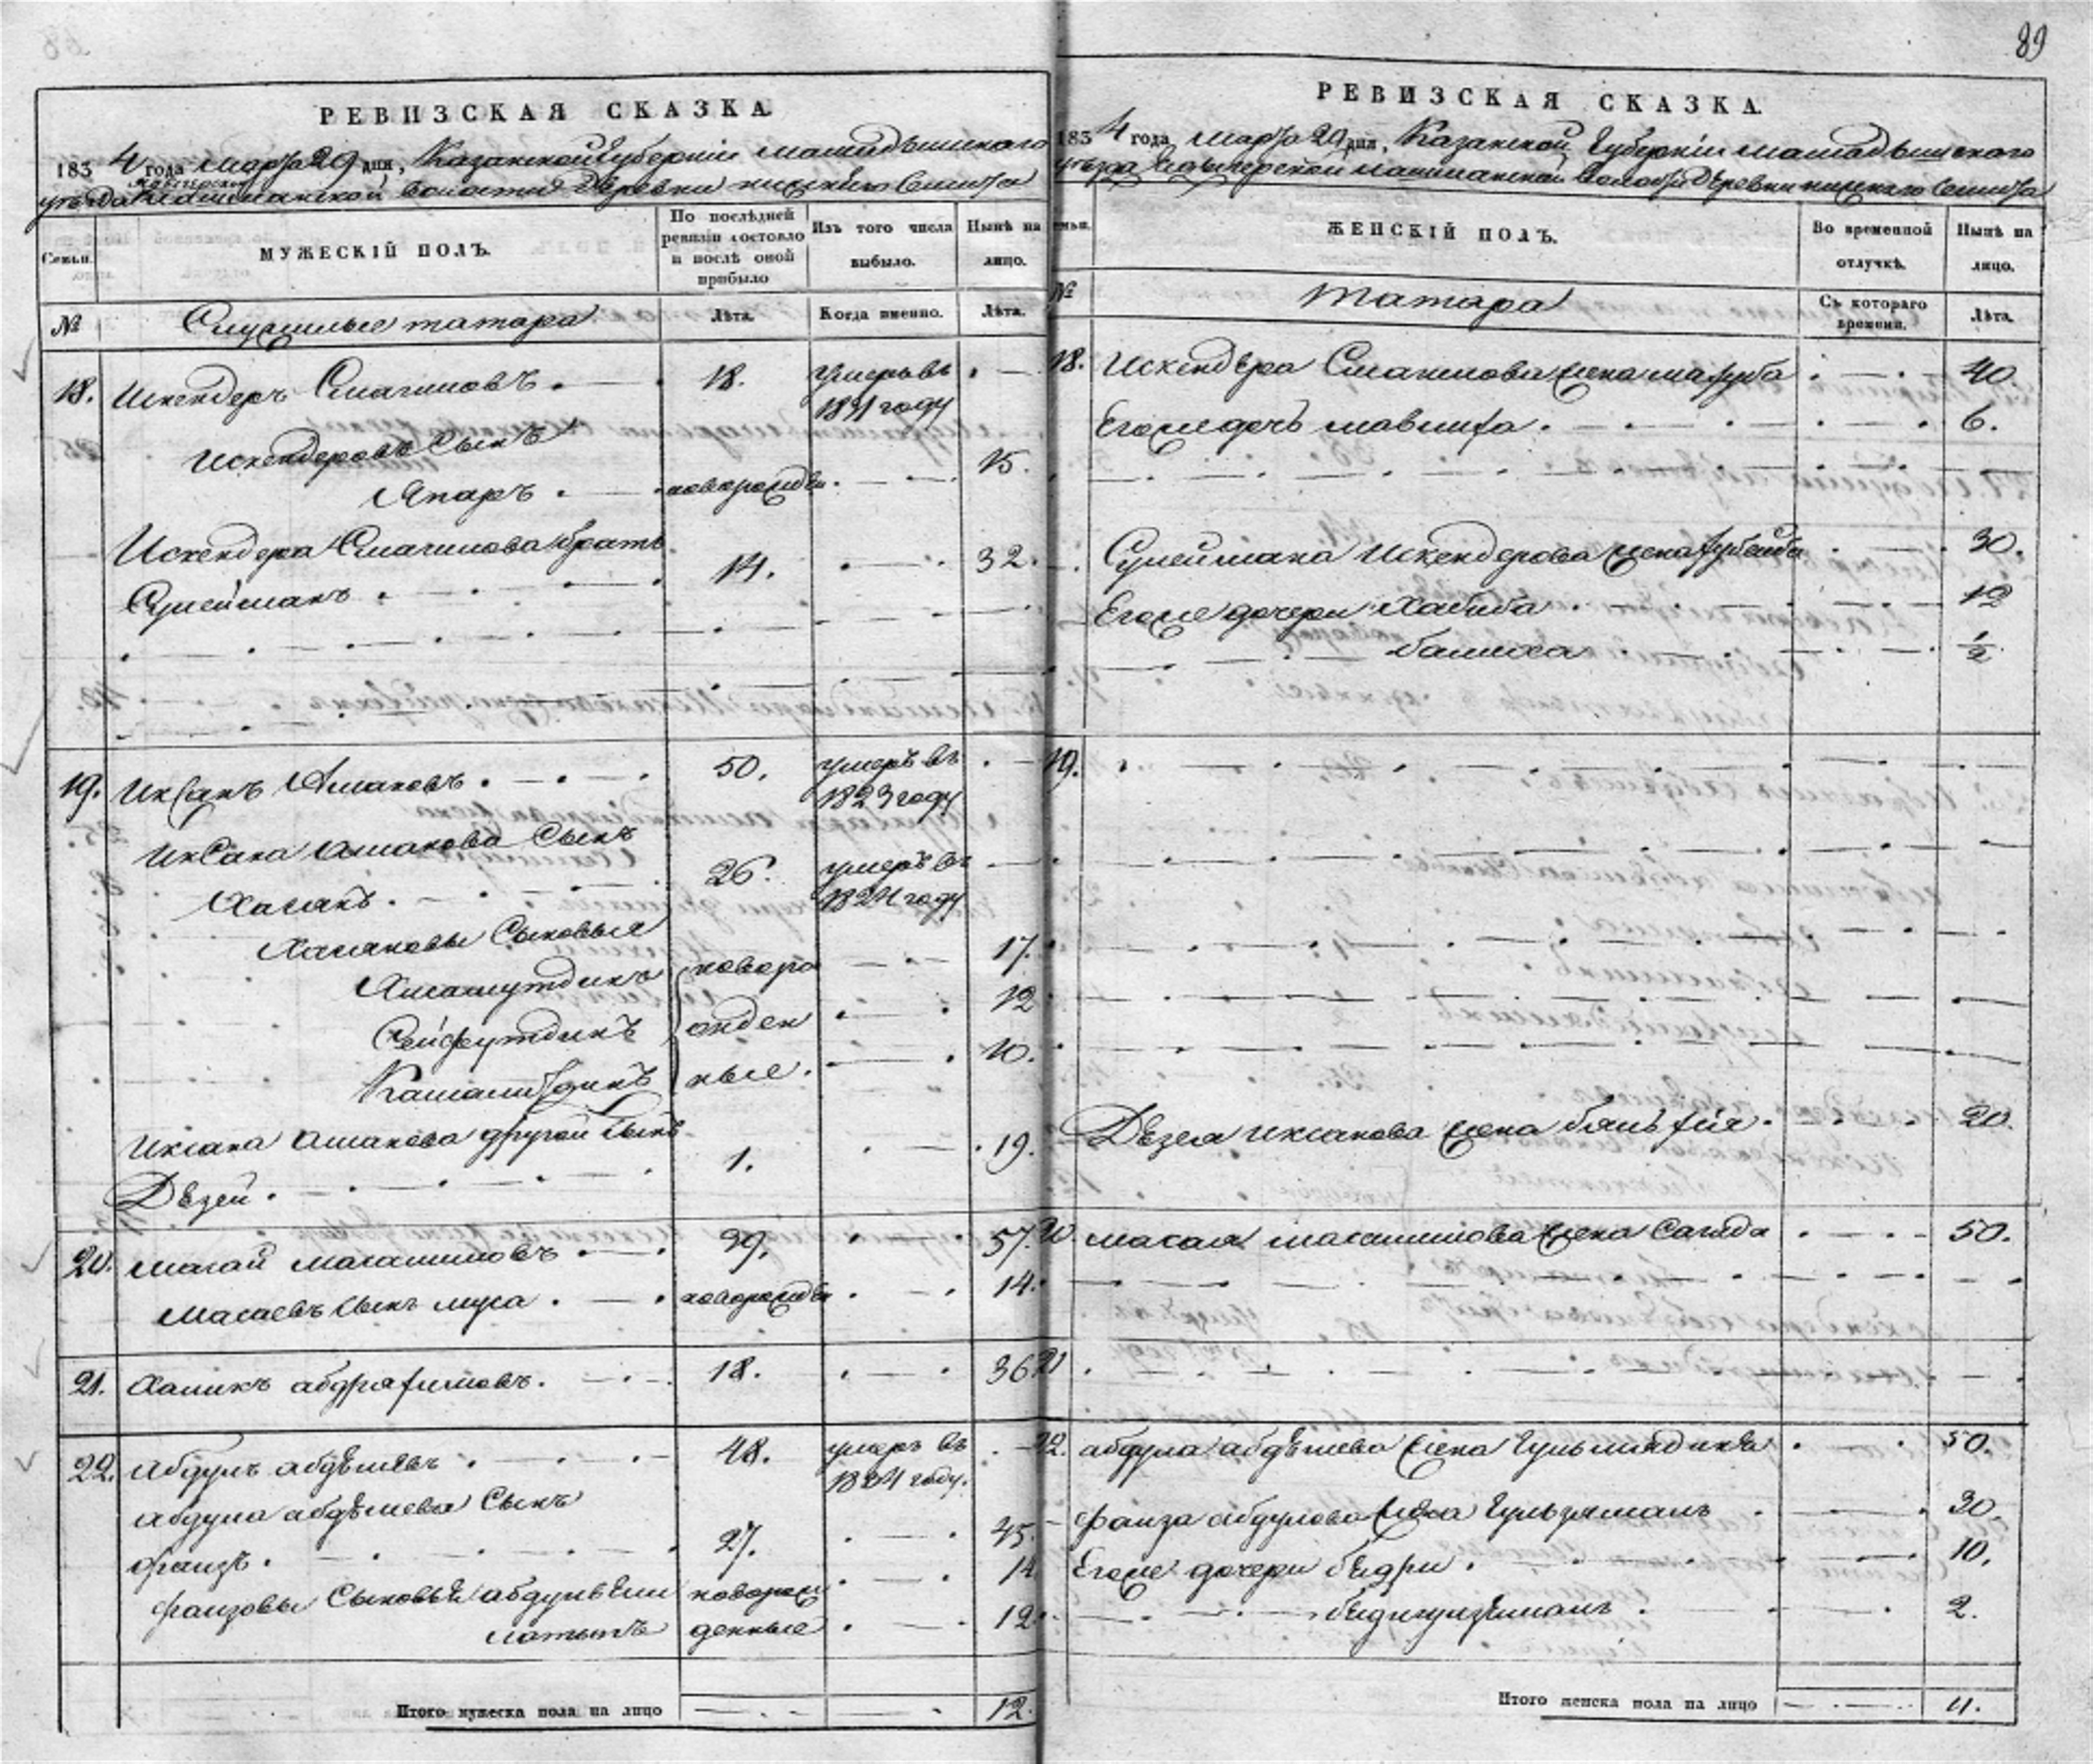 89
РЕВИЗСКАЯ СКАЗКА.
1834 года марта 29 дня, Казанской Губернии Мамадышскаго
уезда волости Деревни нижняго
Семьи.
МУЖЕСКІЙ ПОЛЪ.
По послѣдней ревизіи состояло и послѣ оной прибыло
Изъ того числа выбыло.
Нынѣ на лицо.
№
Служилые татара
Лѣта.
Когда именно.
Лѣта.
18. Искендеръ Смагиловъ. 18. умеръ въ
1831 году
Искендеровъ сынъ
Япаръ. новорожден. 15.
Искендера Смагилова братъ
Сулейманъ. 14. 32.
19. Иксанъ Амаковъ. 50. умеръ въ
1823 году
Иксана Амакова сынъ
Хасанъ. 26. умеръ въ
1824 году
Хасановы сыновья
Хисамутдинъ новоро 17.
Сейфутдинъ жден 12
Камалитдинъ ные. 10.
Иксана Амакова другой сынъ
Дѣзей. 1. 19.
20. Масай 39. 57.
Масаевъ сынъ муса. новорожден 14.
21. Халикъ абдрафиковъ. 18. 36
22. Абдулъ абдѣлевъ. 48. умеръ въ
1834 году.
Абдула абдѣлева сынъ
фаизъ. 27. 45.
фаизовы сыновья новорож 14
латыпъ денные 12.
Итого мужеска пола на лицо 12.
РЕВИЗСКАЯ СКАЗКА.
1834 года марта 29 дня, Казанской Губерніи Мамадышскаго
уезда волости Деревни нижняго
Семьи.
ЖЕНСКІЙ ПОЛЪ.
Во временной отлучкѣ.
Нынѣ на лицо.
№
Татара
Съ котораго времени.
Лѣта.
18. Искендера Смагилова жена 40
Егоже дочь 6.
Сулеймана Искендерова жена зубейда 30.
Егоже дочери Хабиба 12
½
19.
Дѣзея Иксанова жена 20.
20 Масая жена Сагида 50.
21
22. абдула абдѣлева жена 50.
фаиза абдулова жена Гульзямалъ 30.
Егоже дочери бядри. 10.
2.
Итого женска пола на лицо 11.